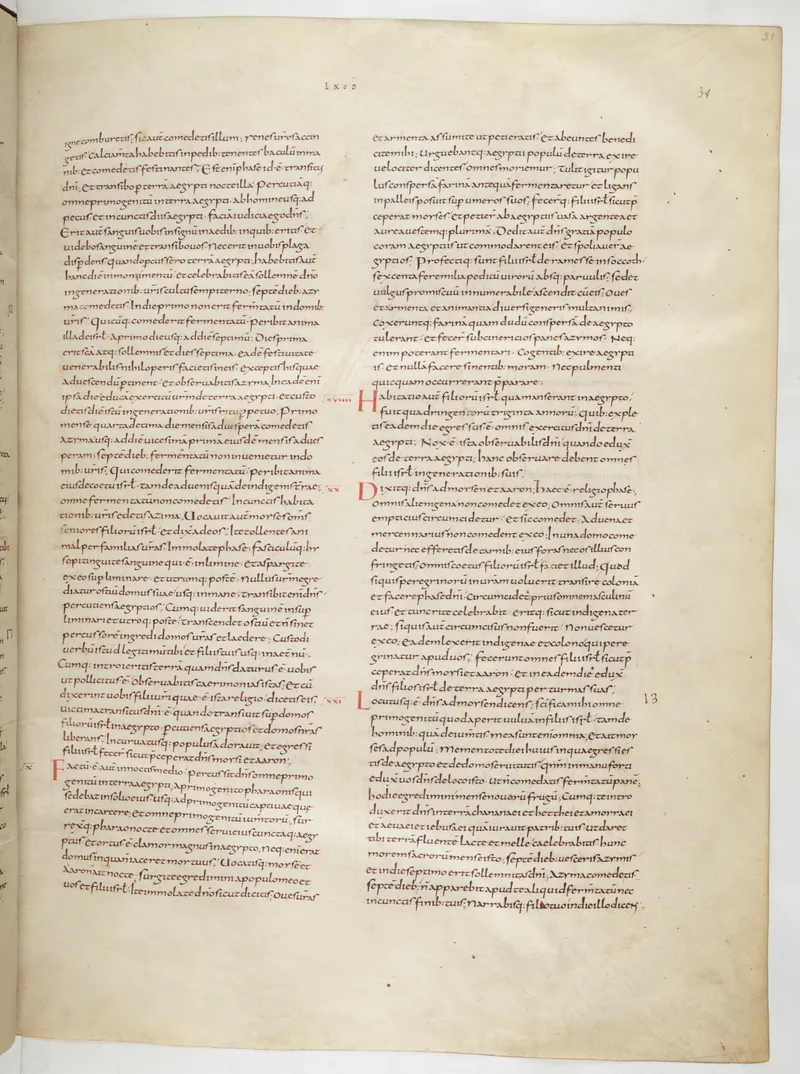 ıxoD
34
31
igne comburetis; sic aut comedetis illum; renes uros accin
getis. calciamta habebitis in pedib; tenentes baculu in ma
nib; et comedetis festinantes; Est eni phase id e transitus
dni; Et transibo p terra aegypti nocte illa. Percutiaq;
omne primogenitu in terra aegypti ab homine usq; ad
pecus et in cunctis diis aegypti faciam iudicia ego dns;
Erit aut sanguis uobis in signu in aedib; in quib; eritis et
uidebo sanguine et transibo uos Nec erit in uobis plaga
disperdens quando pcussero terra aegypti; habebitis aut
hanc die in monumentu et celebrabitis ea sollemne dno
in generationib; uris cultu sempiterno; septe dieb; azy
ma comedetis In die primo non erit fermtatu in domib;
uris Quicuq; comederit fermentatu peribit anima
illa de isrl a primo die usq; ad die septimu Dies prima
erit sca atq; sollemnis et dies septima eade festiuitate
uenerabilis nihil operis facietis in eis exceptis his quae
ad uescendu ptinent et obseruabitis azyma In eade eni
ipsa die educa exercitu urm de terra aegypti et custo
dietis die istu in generationib; uris ritu ppetuo; Primo
mense quarta decima die mensis ad uespera comedetis
azyma usq; ad die uicesima prima eiusde mensis ad ues
peram; septe dieb; fermentatu non inuenietur in do
mib; uris; Qui comederit fermentatu peribit anima
eius de coetu isrl tam de aduenis qua de indigenis terrae;
omne fermentatu non comedetis In cunctis habita
tionib; uris edetis azima Uocauit aut moses oms
seniores filioru isrl et dix ad eos; Ite tollentes ani
mal per familias uras Immolate phase; fasciculuq; hy
sopi tinguite sanguine qui e in limine et aspargite
ex eo sup liminare et utrumq; poste Nullus urm egre
diatur ostiu domus suae usq; mane; transibit eni dns
percutiens aegyptios Cumq; uiderit sanguine in sup
liminari et utroq; poste transcendet ostiu et n sinet
percussore ingredi domos uras et laedere; Custodi
uerbu istud legitimu tibi et filiis tuis usq; in aetnu
Cumq; introieritis terra quam dns daturus e uobis
ut pollicitus e obseruabitis caerimonias istas; et cu
dixerint uobis filii uri quae e ista religio dicetis eis;
uictima transitus dni e quando transiuit sup domos
filioru isrl in aegypto pcutiens aegyptios et domos nras
liberans; Incuruatusq; populus adorauit et egressi
filii isrl fecer sicut pceperat dns mosi et aaron;
xx
Factu e aut in noctis medio percussit dns omne primo
genitu in terra aegypti; a primogenito pharaonis qui
sedebat in solio eius usq; ad primogenitu captiuae que
erat in carcere; et omne primogenitu iumtoru; sur
rexitq; pharao nocte et omnes serui eius cunctaq; aegy
ptus et ortus e clamor magnus in aegypto neq; eni erat
domus in qua n iaceret mortuus; Uocatisq; mose et
aaron ait nocte surgite egredimini a populo meo et
uos et filii isrl Ite immolate dno sicut dicitis; Oues uras
et armenta assumite ut petieratis et abeuntes benedi
cite mihi; Urguebantq; aegyptii populu de terra exire
uelociter dicentes omnes moriemur; Tulit igitur popu
lus conspersa farina antequa fermentaretur et ligans
in palleis posuit sup umeros suos; fecerq; filii isrl sicut p
ceperat moyses et petier ab aegyptiis uasa argentea et
aurea uestemq; plurima Dedit aut dns gratia populo
coram aegyptiis ut commodarent eis et spoliauer ae
gyptios; Profectiq; sunt filii isrl de ramesse in soccoth
sexcenta fere milia peditu uiroru absq; paruulis; sed et
uulgus promiscuu innumerabile ascendit cu eis; Oues
et armenta et animantia diuersi generis multa nimis;
coxeruntq; farina quam dudu conspersa de aegypto
tulerant et fecer subcinericios panes azymos Neq;
enim poterant fermentari Cogentib; exire aegypti
is et nulla facere sinentib; moram Nec pulmenti
quicquam occurrerant pparare;
xviiii
Habitatio aut filioru isrl qua manserant in aegypto
fuit quadringentoru triginta annoru; quib; exple
tis eadem die egressus e omnis exercitus dni de terra
aegypti; Nox e ista obseruabilis dni quando eduxit
eos de terra aegypti; hanc obseruare debent omnes
filii isrl in generationib; suis
xx
Dixitq; dns ad mosen et aaron; haec e religio phase;
omnis alienigena non comedet ex eo; Omnis aut seruus
empticius circumcidetur et sic comedet Aduena et
mercennarius non comedent ex eo; In una domo come
detur nec efferetis de carnib; eius foras nec os illius con
fringetis; omnis coetus filioru isrl faciet illud; Quod
si quis peregrinoru in uram uoluerit transire colonia
et facere phase dni Circumcidet prius omne masculinu
eius et tunc rite celebrabit eritq; sicut indigena ter
rae si quis aut circumcisus non fuerit Non uescetur
ex eo; Eadem lex erit indigenae et colono qui pere
grinatur apud uos; fecerunt omnes filii isrl sicut p
ceperat dns mosi et aaron et in eadem die eduxit
dns filios isrl de terra aegypti per turmas suas;
xxi
Locutusq; e dns ad mosen dicens; scifica mihi omne
13
primogenitu quod aperit uulua in filiis isrl tam de
hominib; qua de iumtis mea sunt eni omnia; et ait moy
ses ad populu; Mementote diei huius in qua egressi es
tis de aegypto et de domo seruitutis Qnm in manu forti
eduxit uos dns de loco isto Ut n comedatis fermtatu pane;
hodie egredimini mense nouaru frugu; Cumq; te intro
duxerit dns in terra chananaei et hetthei et amorraei
et aeuaei et iebusaei qua iurauit patrib; tuis ut daret
tibi terra fluente lacte et melle caelebrabis hunc
morem sacroru mense isto septe dieb; uesceris azymis
et in die septimo erit sollemnitas dni; Azyma comedetis
septe dieb; n apparebit apud te aliquid fermtatu nec
in cunctis finib; tuis; Narrabisq; filio tuo in die illo dicens